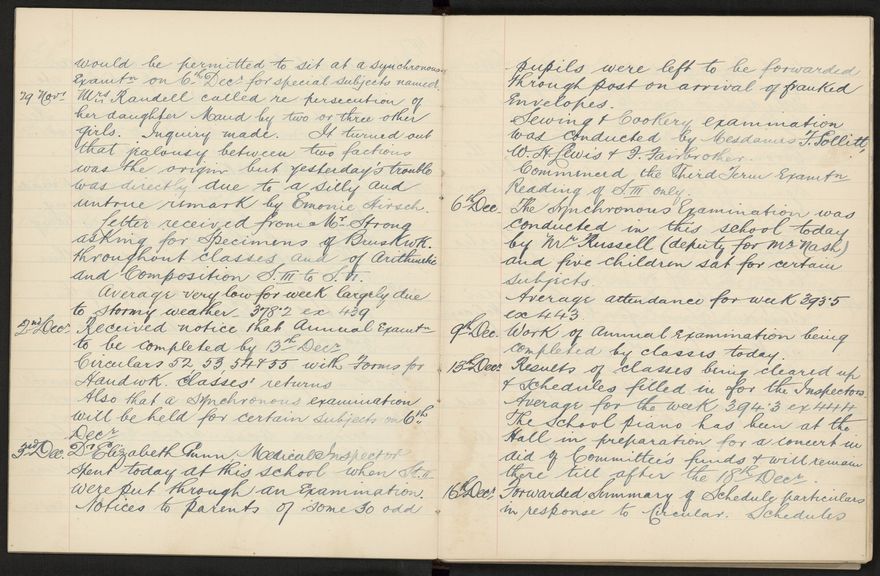 would be permitted to sit at a synchronous
Examtn on 6th Decr for special subjects named.
29 Novr Mrs Randell called re persecution of
her daughter Maud by two or three other
girls. Inquiry made. It turned out
that jealousy between two factions
was the origin but yesterday's trouble
was directly due to a silly and
untrue remark by Emonie Hirsch.
Letter received from Mr Strong
asking for Specimens of Brushwk.
throughout classes and of Arithmetic
and Composition S.III to S.VI.
Average very low for week largely due
to stormy weather 378.2 ex 439
2nd Decr Received notice that Annual Examtn
to be completed by 13th Decr
Circulars 52 53, 54 & 55 with Forms for
Handwk. Classes' returns
Also that a Synchronous examination
will be held for certain subjects on 6th
Decr
3rd Dec. Dr Elizabeth Gunn, Medical Inspector
spent today at this school when St. II
were put through an Examination.
Notices to parents of some 30 odd
pupils were left to be forwarded
through post on arrival of franked
Envelopes.
Sewing & Cookery examination
was conducted by Mesdames T. Pollitt,
W. H. Lewis & J. Fairbrother.
Commenced the Third Term Examtn
Reading of S.III only.
6th Dec. The Synchronous Examination was
conducted in this school today
by Mr Russell (deputy for Mr Nash)
and five children sat for certain
subjects.
Average attendance for week 393.5
ex 443
9th Dec. Work of Annual Examination being
completed by classes today.
13th Decr Results of classes being cleared up
& Schedules filled in for the Inspectors
Average for the week 394.3 ex 444
The School piano has been at the
Hall in preparation for a concert in
aid of Committee's funds & will remain
there till after the 18th Decr.
16th Decr Forwarded Summary of Schedule particulars
in response to Circular. Schedules